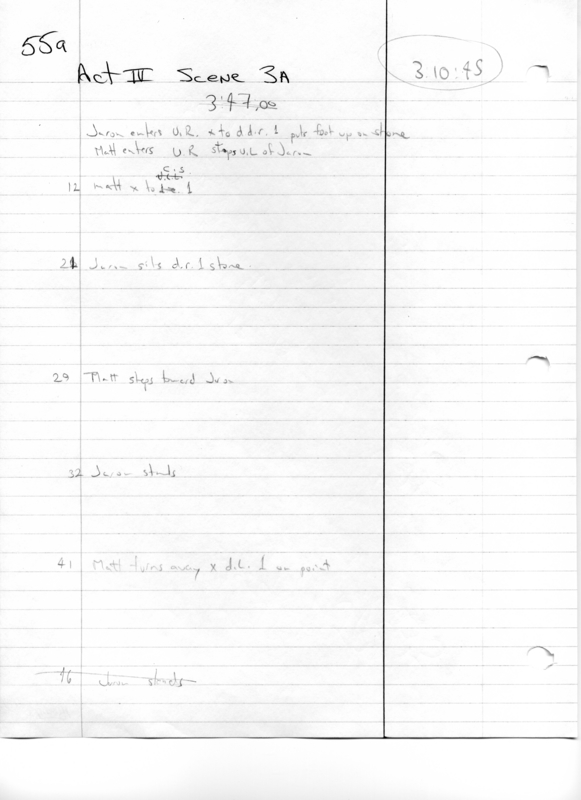 55a
Act III Scene 3A
3.10:45
3:47,00
Jaron enters U.R. x to d d.r. 1 puts foot up on stone
Matt enters U.R stops U.L of Jaron
C.S.
12 matt x to 1
21 Jaron sits d.r. 1 stone
29 Matt steps toward Jaron
32 Jaron stands
41 Matt turns away x d.L. 1 on point
46 Jaron stands